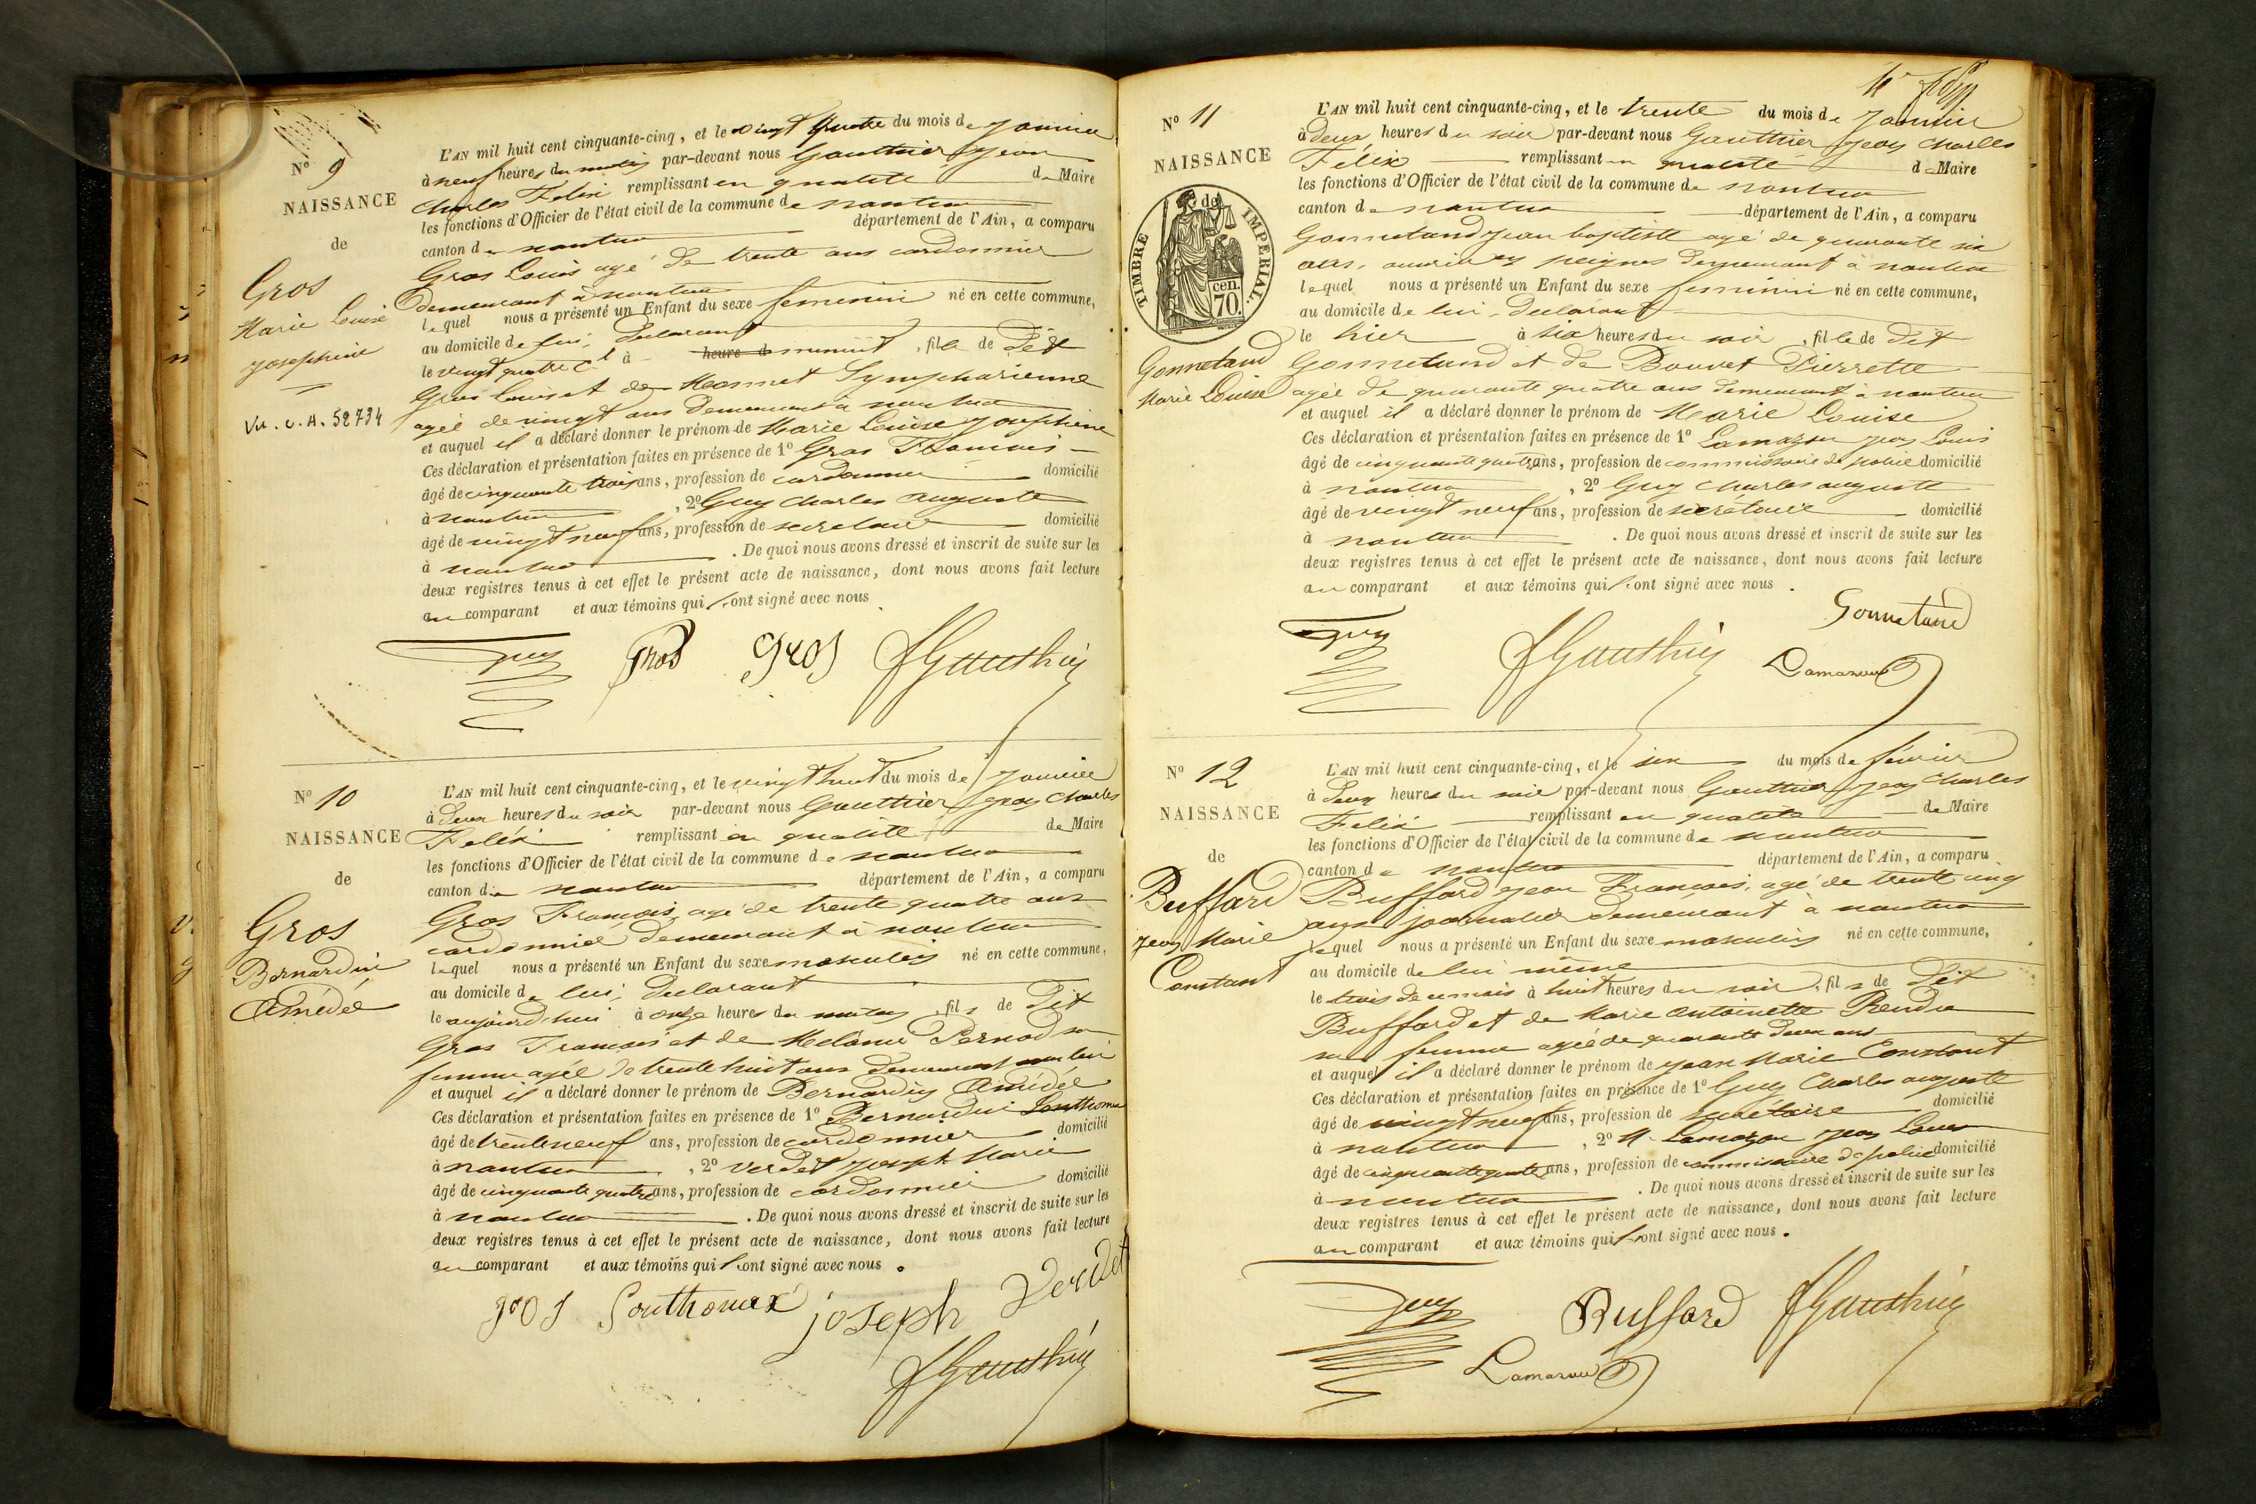 No 9
NAISSANCE
de
Gros
Marie Louise
Josephine
Vu. c. A. 52734
L'AN mil huit cent cinquante-cinq, et le vingt quatre du mois de janvier
à neuf heures du matin par-devant nous Gauthier Jean
Charles Felix remplissant en qualité de Maire
les fonctions d'Officier de l'état civil de la commune de nantua
canton de nantua département de l'Ain, a comparu
Gros Louis agé de trente ans cordonnier
demeurant à nantua
lequel nous a présenté un Enfant du sexe feminin né en cette commune,
au domicile de lui, declarant
le vingt quatre ct à heure d minuit, fille de Dit
Gros Louis et de Monnet Sympharienne
agée de vingt ans demeurant à nantua
et auquel il a déclaré donner le prénom de Marie Louise Josephine
Ces déclaration et présentation faites en présence de 1o Gros François
âgé de cinquante trois ans, profession de cordonnier domicilié
à nantua, 2o Guy Charles auguste
âgé de vingt neuf ans, profession de secretaire domicilié
à nantua. De quoi nous avons dressé et inscrit de suite sur les
deux registres tenus à cet effet le présent acte de naissance, dont nous avons fait lecture
au comparant et aux témoins qui ont signé avec nous
Guy Gros Gros FGauthier
No 10
NAISSANCE
de
Gros
Bernardin
Amédée
L'AN mil huit cent cinquante-cinq, et le vingt huit du mois de Janvier
à deux heures du soir par-devant nous Gauthier jean Charles
Felix remplissant en qualité de Maire
les fonctions d'Officier de l'état civil de la commune de nantua
canton de nantua département de l'Ain, a comparu
Gros François, agé de trente quatre ans
cordonnier demeurant à nantua
lequel nous a présenté un Enfant du sexe masculin né en cette commune,
au domicile de lui, declarant
le aujourd'hui à onze heures du matin, fils de Dit
Gros François et de Melanie Pernod sa
femme agée de trente huit ans demeurant avec lui
et auquel il a déclaré donner le prénom de Bernardin Amédée
Ces déclaration et présentation faites en présence de 1o Bernardin Gonthomex
âgé de trente neuf ans, profession de cordonnier domicilié
à nantua, 2o Verdet Joseph Marie
âgé de cinquante quatre ans, profession de cordonnier domicilié
à nantua. De quoi nous avons dressé et inscrit de suite sur les
deux registres tenus à cet effet le présent acte de naissance, dont nous avons fait lecture
au comparant et aux témoins qui ont signé avec nous.
gros joseph Verdet
FGauthier
No 11
NAISSANCE
de
TIMBRE IMPERIAL.
70. cen.
Gonnetand
Marie Louise
L'AN mil huit cent cinquante-cinq, et le trente du mois de Janvier
à deux heures du soir par-devant nous Gauthier Jean Charles
Felix remplissant en qualité de Maire
les fonctions d'Officier de l'état civil de la commune de nantua
canton de nantua département de l'Ain, a comparu
Gonnetand Jean baptiste agé de quarante six
ans, ouvrier en peignes demeurant à nantua
lequel nous a présenté un Enfant du sexe feminin né en cette commune,
au domicile de lui, declarant
le hier à six heures du soir, fille de Dit
Gonnetand et de Bouvet Pierrette
agée de quarante quatre ans demeurant à nantua
et auquel il a déclaré donner le prénom de Marie Louise
Ces déclaration et présentation faites en présence de 1o Lamazou jean Louis
âgé de cinquante quatre ans, profession de commissaire de police domicilié
à nantua, 2o Guy Charles auguste
âgé de vingt neuf ans, profession de secrétaire domicilié
à nantua. De quoi nous avons dressé et inscrit de suite sur les
deux registres tenus à cet effet le présent acte de naissance, dont nous avons fait lecture
au comparant et aux témoins qui ont signé avec nous.
Gonnetand
Guy FGauthier Lamazou
No 12
NAISSANCE
de
Buffard
Jean Marie
Constant
L'AN mil huit cent cinquante-cinq, et le six du mois de février
à deux heures du soir par-devant nous Gauthier Jean Charles
Felix remplissant en qualité de Maire
les fonctions d'Officier de l'état civil de la commune de nantua
canton de nantua département de l'Ain, a comparu
Buffard Jean François, agé de trente cinq
ans journalier demeurant à nantua
lequel nous a présenté un Enfant du sexe masculin né en cette commune,
au domicile de lui même
le trois de ce mois à huit heures du soir, fils de Dit
Buffard et de Marie antoinette
sa femme agée de quarante deux ans
et auquel il a déclaré donner le prénom de Jean Marie Constant
Ces déclaration et présentation faites en présence de 1o Guy Charles auguste
âgé de vingt neuf ans, profession de secrétaire domicilié
à nantua, 2o M. Lamazou Jean Louis
âgé de cinquante quatre ans, profession de commissaire de police domicilié
à nantua. De quoi nous avons dressé et inscrit de suite sur les
deux registres tenus à cet effet le présent acte de naissance, dont nous avons fait lecture
au comparant et aux témoins qui ont signé avec nous.
Guy Buffard FGauthier
Lamazou